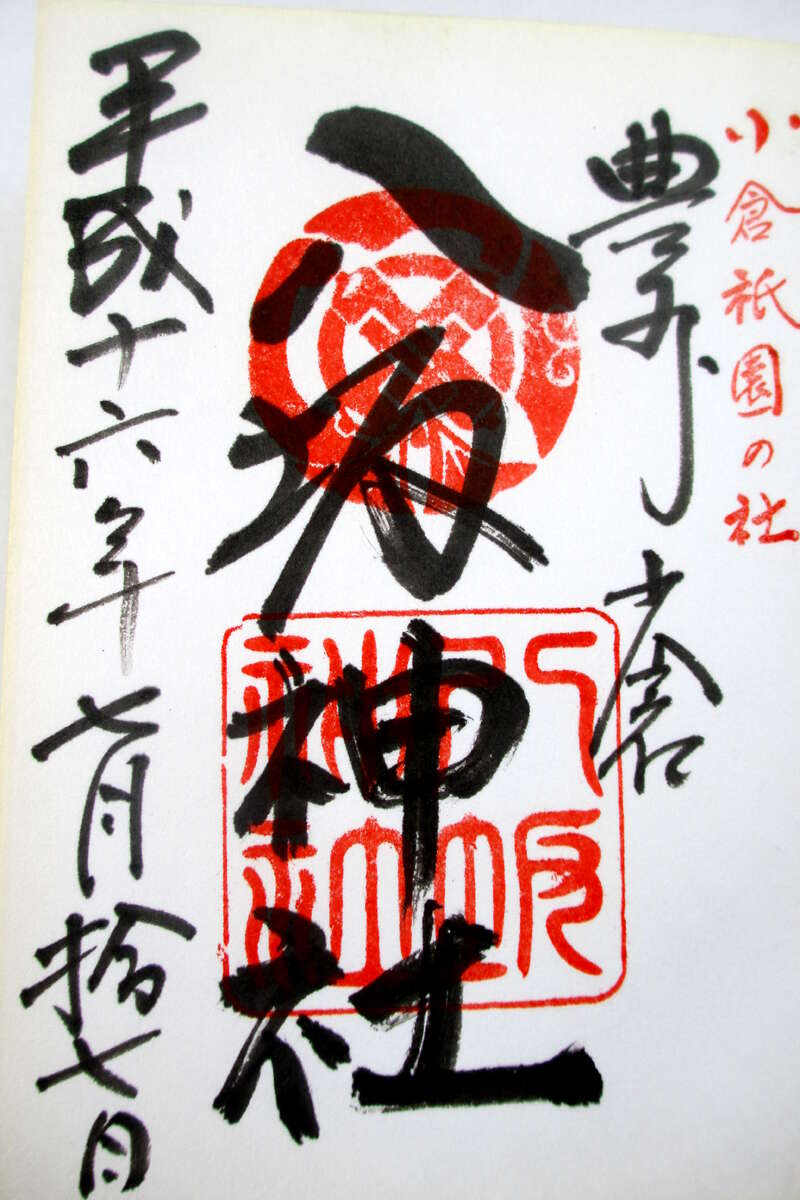 小倉祇園の社
豊州小倉
八坂神社
八坂
神社
平成十六年七月拾七日